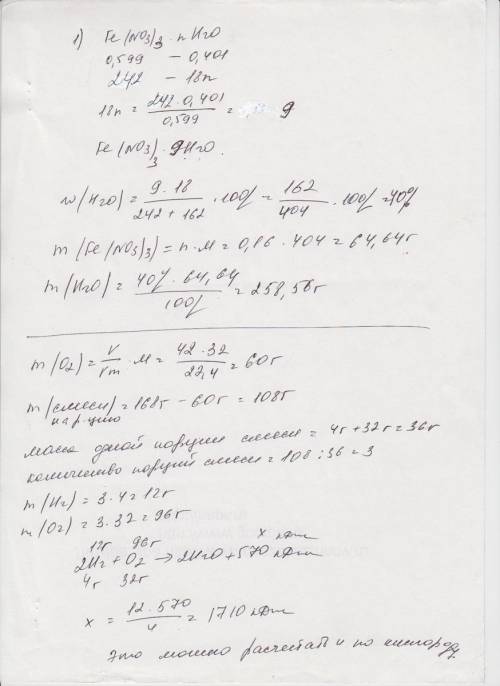 1) Fe(NO3)3 · nH2O
0,599 – 0,401
242 – 18n
18n = 242·0,401 / 0,599 = 9
Fe(NO3)3 · 9H2O.
w(H2O) = 9·18 / 242+162 · 100% = 162 / 404 · 100% = 40%
m(Fe(NO3)3) = n·M = 0,16 · 404 = 64,64г
m(H2O) = 40% · 64,64 / 100% = 258,56г
m(O2) = V / Vm · M = 42·32 / 22,4 = 60г
m(смеси) = 168г – 60г = 108г
на р-цию
масса одной порции смеси = 4г + 32г = 36г
количество порций смеси = 108 : 36 = 3
m(H2) = 3·4 = 12г
m(O2) = 3·32 = 96г
12г 96г x кДж
2H2 + O2 → 2H2O + 570 кДж
4г 32г
x = 12·570 / 4 = 1710 кДж
Это можно расчетать и по кислороду.